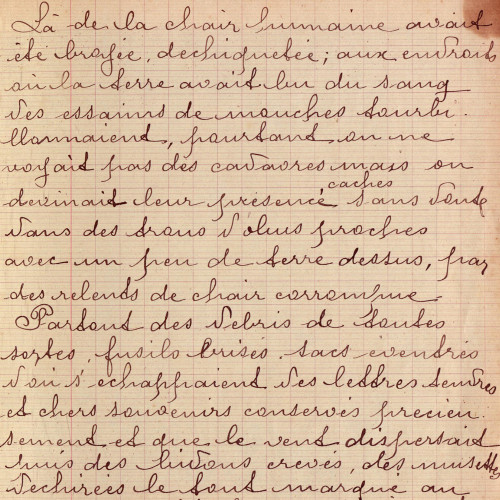 Là de la chair humaine avait
été broyée, dechiquetée; aux endroits
où la terre avait bu du sang
des essaims de mouches tourbi-
llonnaient, pourtant on ne
voyait pas des cadavres mais on
devinait leur présence cachés sans doute
dans des trous d'obus proches
avec un peu de terre dessus, par
des relents de chair corrompue.
Partout des debris de toutes
sortes, fusils brisés, sacs éventrés
d'où s'echappaient des lettres tendres
et chers souvenirs conservés précieu-
sement et que le vent dispersait
puis des bidons crevés, des musettes
dechirées le tout marqué au